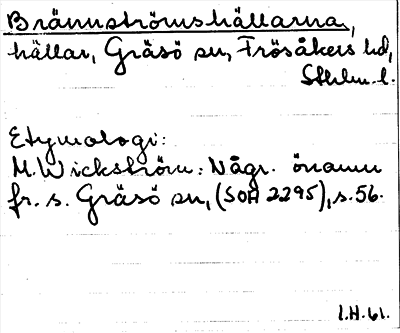 Brännströmshällarna,
hällar, Gräsö sn, Frösåkers hd,
Sthlm. l.
Etymologi:
M. Wickström: Någr. önamn
fr. s. Gräsö sn, (SOA 2295), s. 56.
I.H. 61.